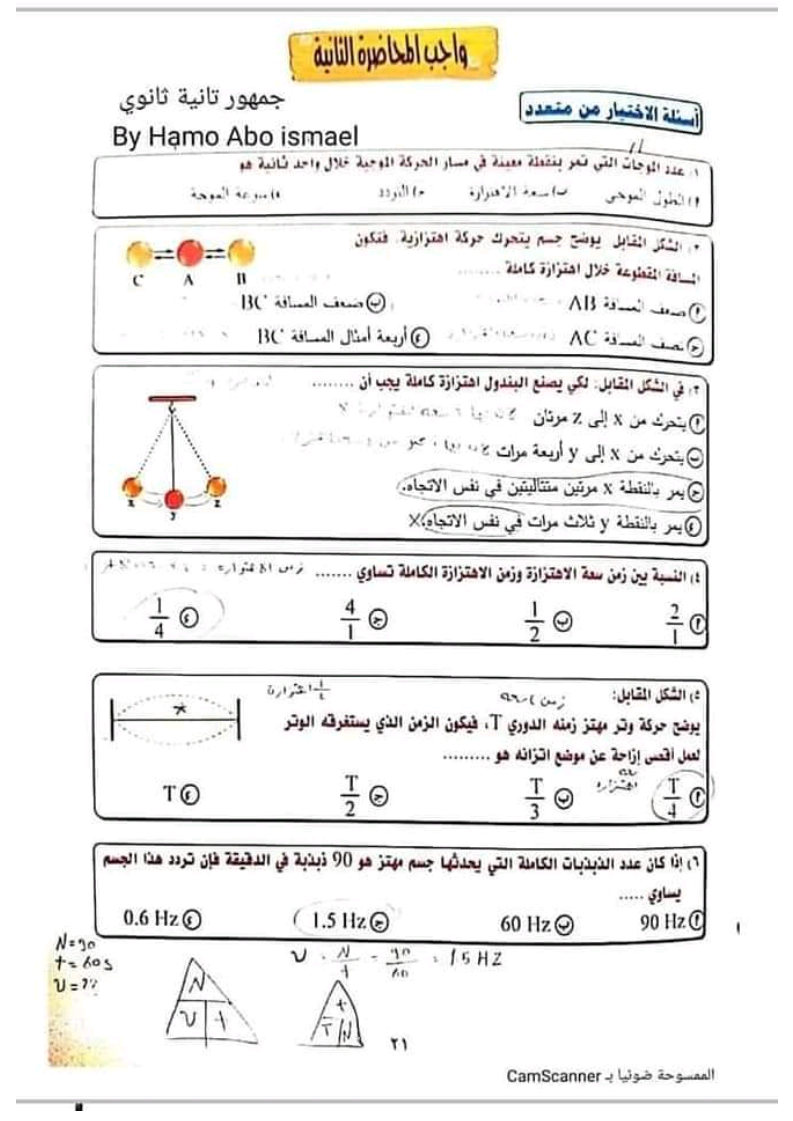 واجب المحاضرة الثانية
جمهور تانية ثانوي
By Hamo Abo ismael
أسئلة الاختيار من متعدد
١) عدد الموجات التي تمر بنقطة معينة في مسار الحركة الموجية خلال واحد ثانية هو
أ) الطول الموجي ب) سعة الاهتزازة ج) التردد د) سرعة الموجة
٢) الشكل المقابل يوضح جسم يتحرك حركة اهتزازية. فتكون
المسافة المقطوعة خلال اهتزازة كاملة ........
C A B
أ ضعف المسافة AB ب ضعف المسافة BC
ج نصف المسافة AC د أربعة أمثال المسافة BC
٣) في الشكل المقابل: لكي يصنع البندول اهتزازة كاملة يجب أن .........
أ يتحرك من x إلى z مرتان
ب يتحرك من x إلى y أربعة مرات
ج يمر بالنقطة x مرتين متتاليتين في نفس الاتجاه.
د يمر بالنقطة y ثلاث مرات في نفس الاتجاه X
x y z
٤) النسبة بين زمن سعة الاهتزازة وزمن الاهتزازة الكاملة تساوي .......
أ 2/1 ب 1/2 ج 4/1 د 1/4
٥) الشكل المقابل: زمن سعه 1/4 اهتزازة
يوضح حركة وتر مهتز زمنه الدوري T، فيكون الزمن الذي يستغرقه الوتر
لعمل أقصى إزاحة عن موضع اتزانه هو .........
أ T/4 ب T/3 ج T/2 د T
٦) إذا كان عدد الذبذبات الكاملة التي يحدثها جسم مهتز هو 90 ذبذبة في الدقيقة فإن تردد هذا الجسم
يساوي .....
أ 90 Hz ب 60 Hz ج 1.5 Hz د 0.6 Hz
N = 90
t = 60 s
υ = ??
υ = N/t = 90/60 = 1.5 HZ
N
υ t
t
T N
٢١
الممسوحة ضوئيا بـ CamScanner